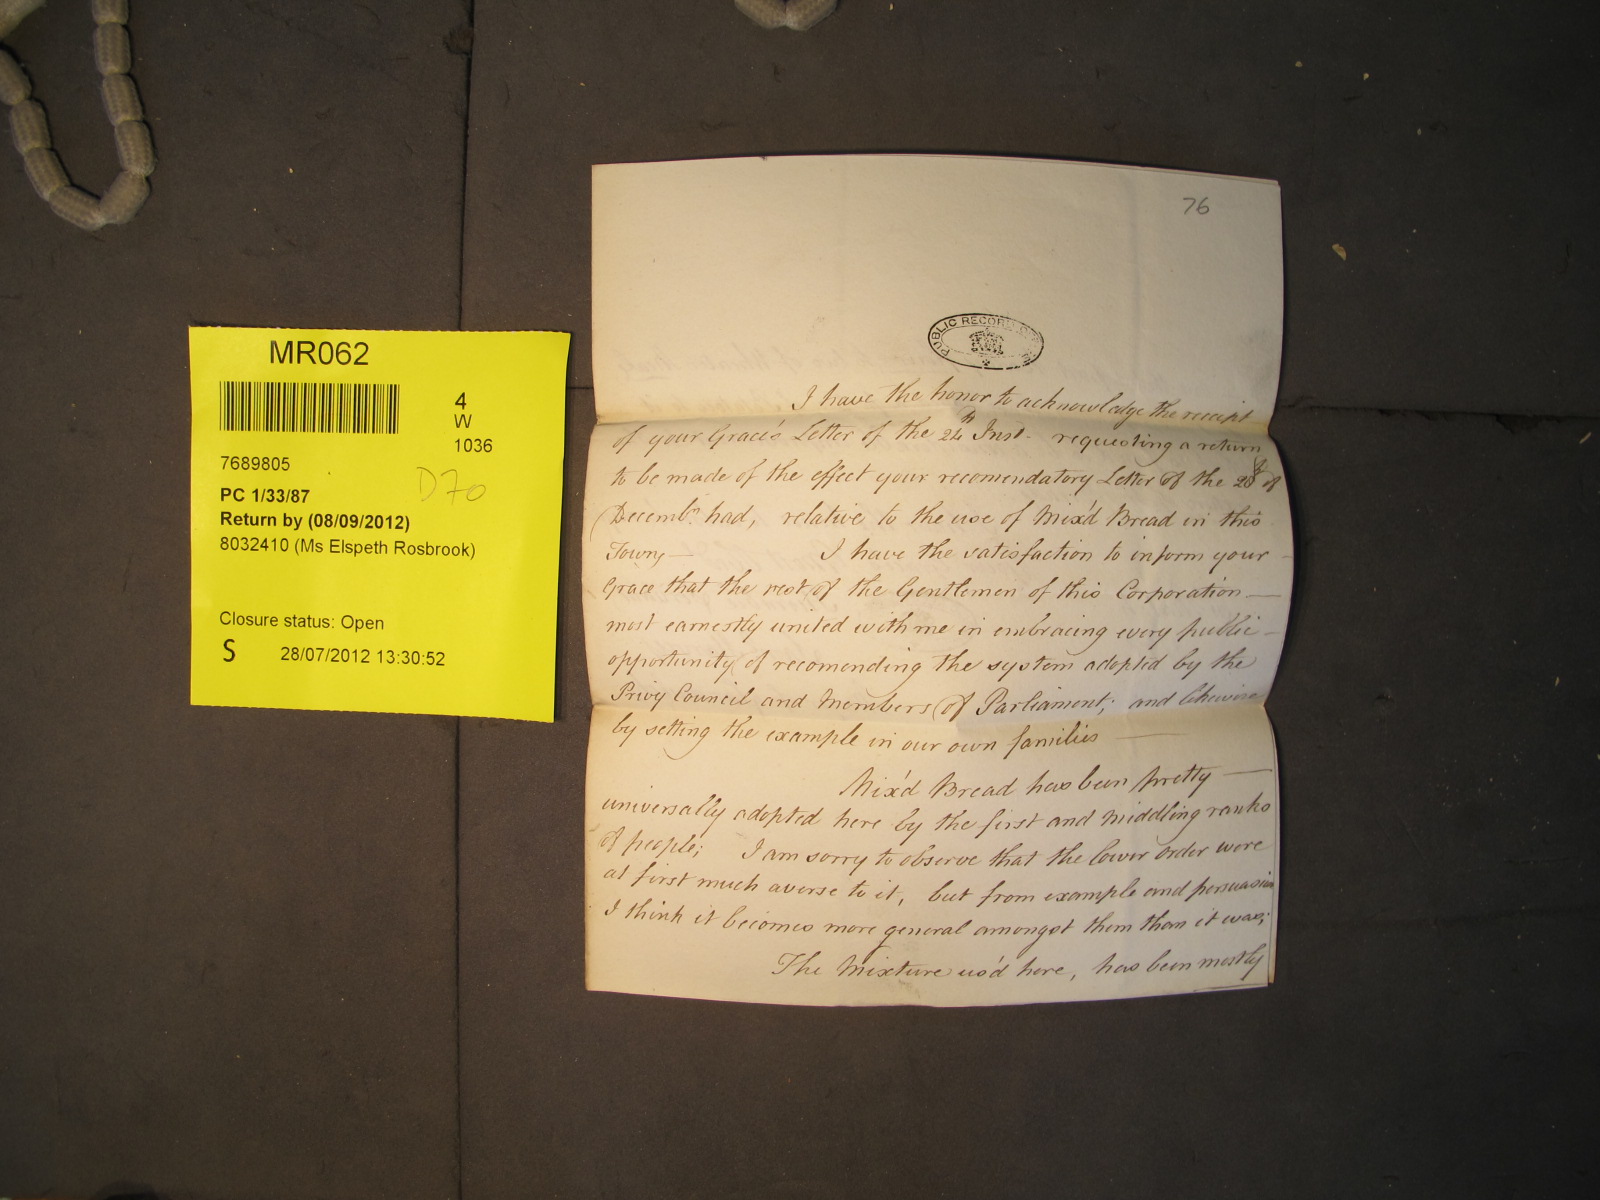 MR062
4
W
1036
7689805
D70
PC 1/33/87
Return by (08/09/2012)
8032410 (Ms Elspeth Rosbrook)
Closure status: Open
S 28/07/2012 13:30:52
76
PUBLIC RECORD
I have the honor to acknowledge the receipt
of your Grace's Letter of the 24th Inst. requesting a return
to be made of the effect your recomendatory Letter of the 28th of
Decembr. had, relative to the use of Mix'd Bread in this
Town, — I have the satisfaction to inform your —
Grace that the rest of the Gentlemen of this Corporation —
most earnestly united with me in embracing every public —
opportunity of recomending the system adopted by the
Privy Council and Members of Parliament; and likewise
by setting the example in our own families —
Mix'd Bread has been pretty —
universally adopted here by the first and middling ranks
of people; I am sorry to observe that the lower order were
at first much averse to it, but from example and persuasion
I think it becomes more general amongst them than it was;
The Mixture us'd here, has been mostly